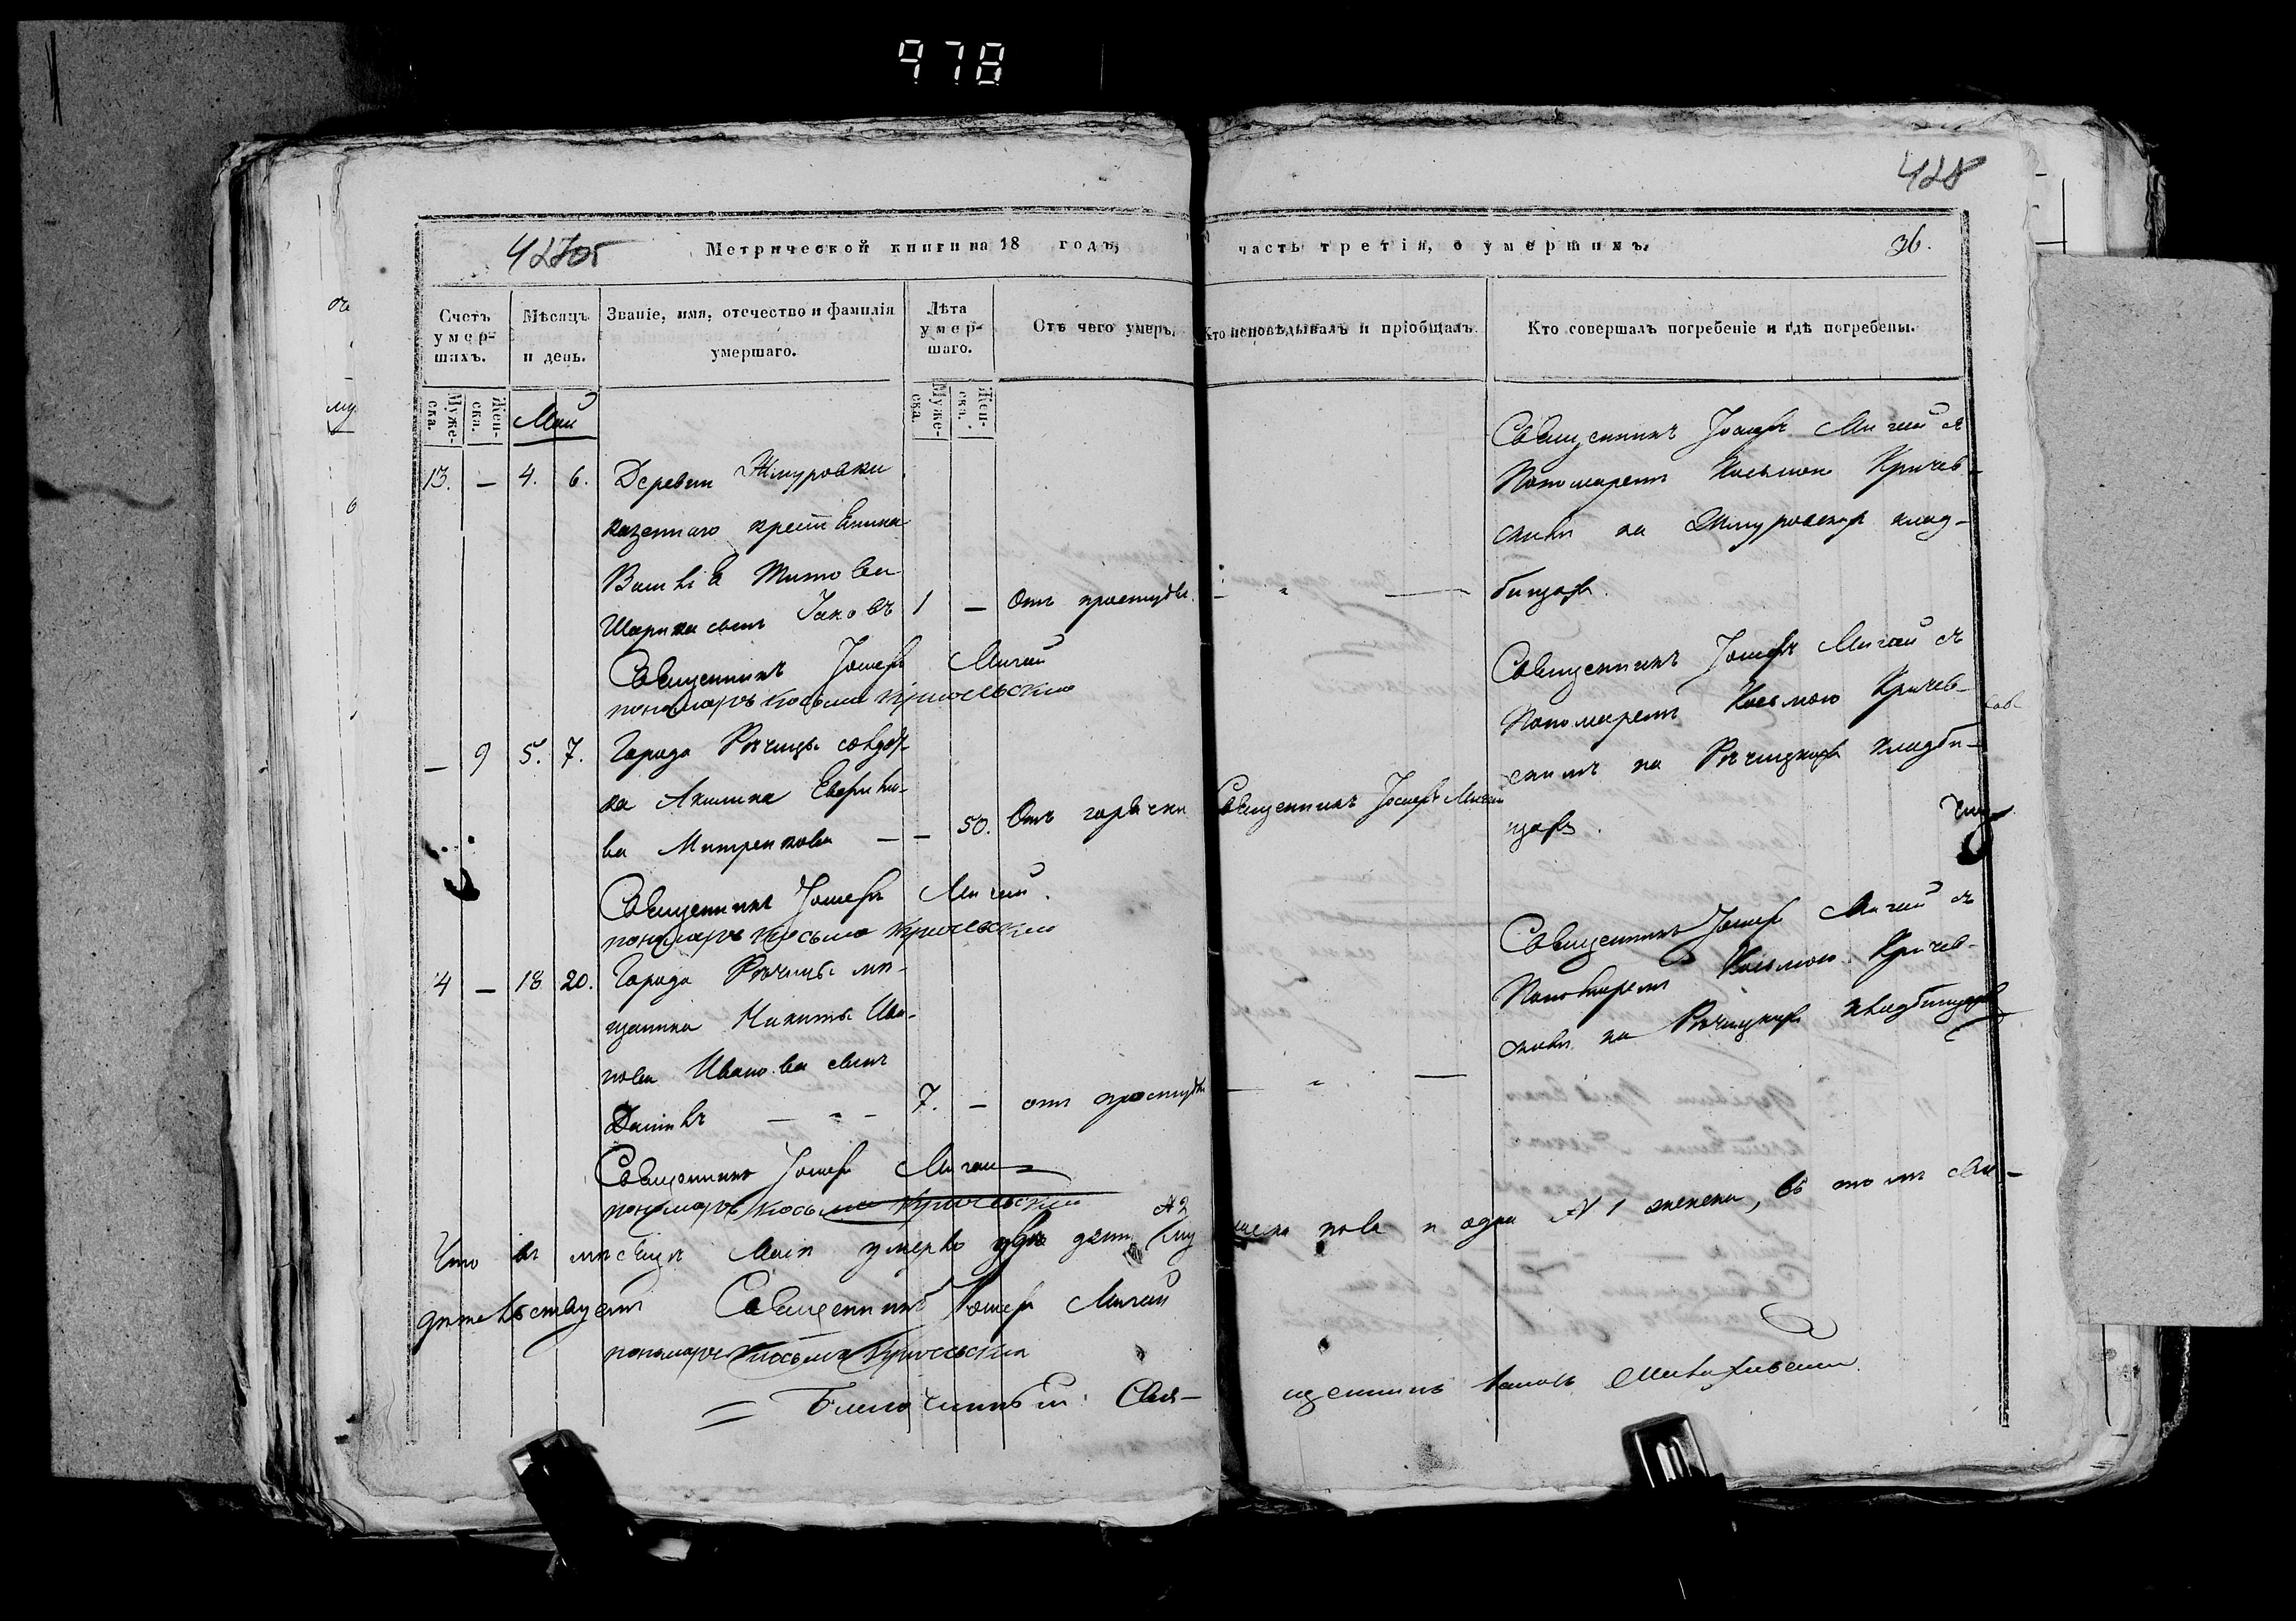 978
428
4270б
Метрической книги на 18 годъ, часть третія, о умершихъ.
36.
Счетъ умер-
шихъ.
Мѣсяцъ
и день.
Званіе, имя, отечество и фамилія
умершаго.
Лѣта
умер-
шаго.
Отъ чего умеръ.
Кто исповѣдывалъ и пріобщалъ.
Кто совершалъ погребеніе и гдѣ погребены.
Муже-
ска.
Жен-
ска.
Май
Муже-
ска.
Жен-
ска.
13. — 4. 6. Деревни Жмуровки
казеннаго крестьянина
Василія Титова
Шарика сынъ Іаковъ 1 — Отъ простуды. — " —
Священникъ Іосифъ Мигай съ
Пономаремъ Косьмою Кричев-
скимъ на Жмуровскомъ клад-
бищѣ.
Священникъ Іосифъ Мигай
пономарь Косьма Кричевскій
— 9 5. 7. Города Рѣчицы солдат-
ка Акилина
ва Митренкова — — 50. Отъ горячки Священникъ Іосифъ Мигай
Священникъ Іосифъ Мигай съ
Пономаремъ Косьмою Кричев-
скимъ на Рѣчицкомъ кладби-
щѣ.
Священникъ Іосифъ Мигай.
пономарь Косьма Кричевскій
14 — 18 20. Города Рѣчицы мѣ-
щанина Никиты Ива-
нова Иванова сынъ
Даніилъ — " — 7. — отъ простуды — " —
Священникъ Іосифъ Мигай съ
Пономаремъ Косьмою Кричев-
скимъ на Рѣчицкомъ кладбищѣ
Священникъ Іосифъ Мигай
пономарь Косьма Кричевскій
Что въ мѣсяцѣ Маіи умерло два № 2 муческа пола и одна № 1 женска, въ томъ сви-
дѣтельствуемъ Священникъ Іосифъ Мигай
пономарь Косьма Кричевскій
= Благочинный Свя-
щенникъ